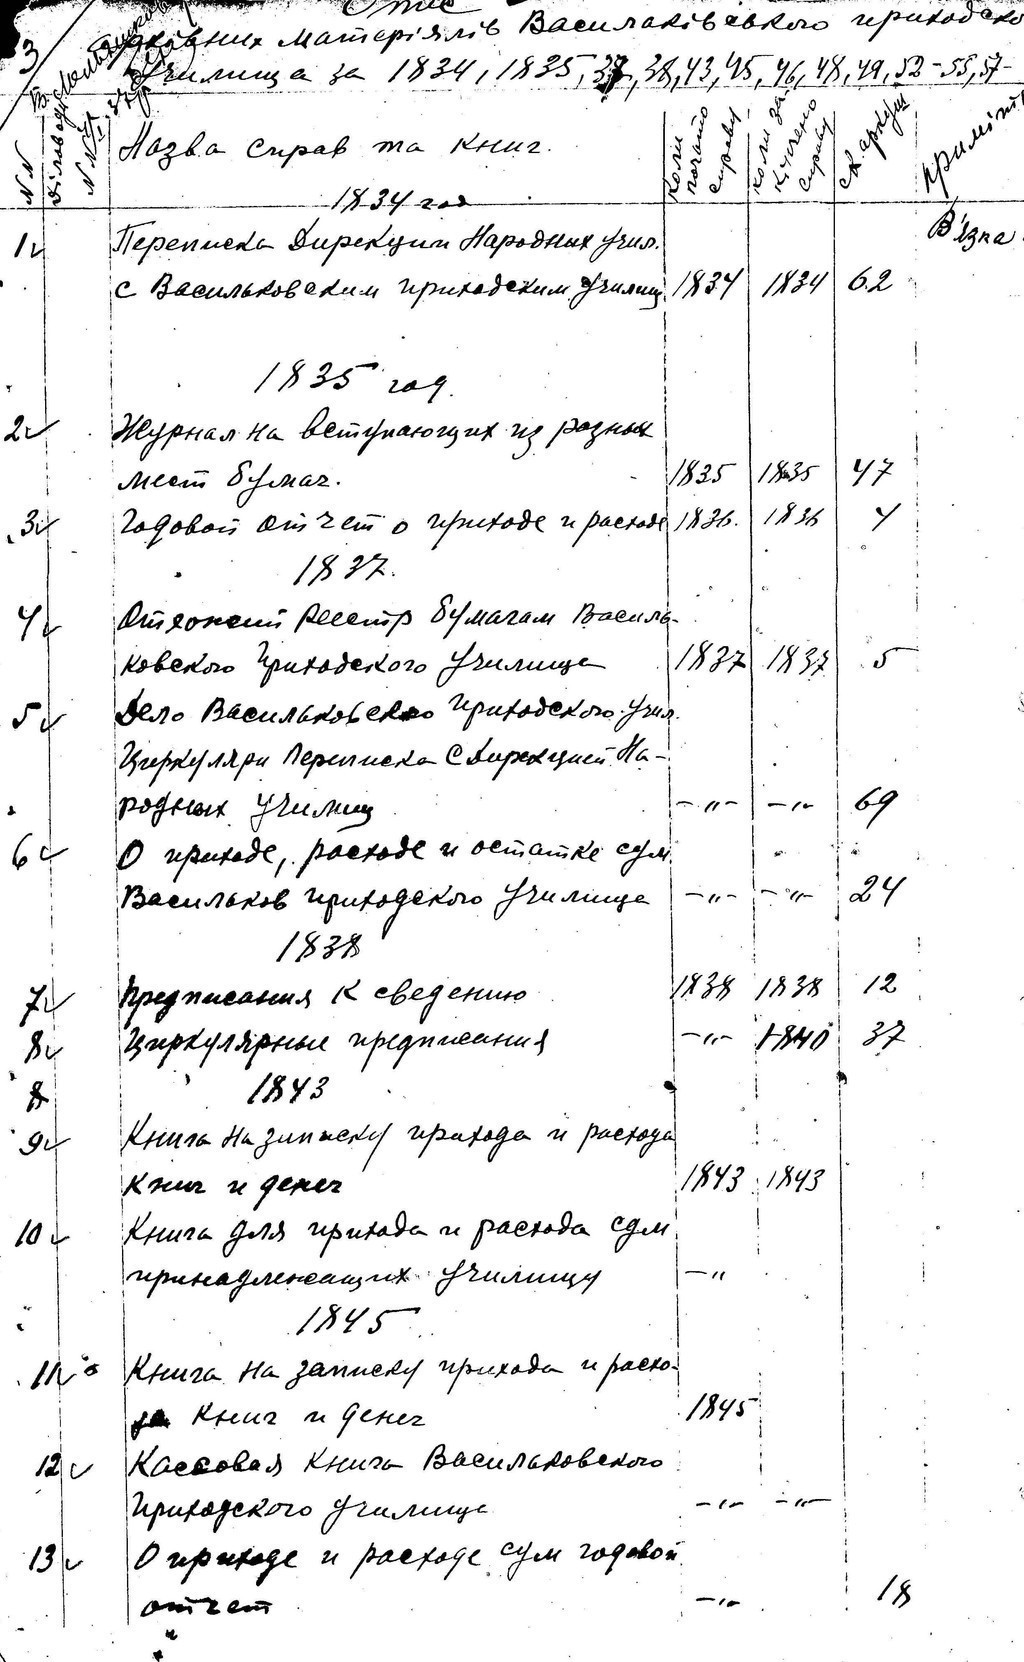 Опис
матеріялів Васильківського приходсько
училища за 1834, 1835, 37, 38, 43, 45, 46, 48, 49, 52-55, 57-
N N
Назва справ та книг.
коли почато справу
коли за кінчено справу
арку
приміт
1834 год
1 Переписка Дирекции Народных Учил.
с Васильковским приходским Училищ 1834 1834 62
В'язка
1835 год.
2 Журнал на вступающих из разных
мест бумаг. 1835 1835 47
3 Годовой отчет о приходе и расходе 1836. 1836 4
1837.
4 Реестр бумагам Василь-
ковского Приходского Училища 1837 1837 5
5 Дело Васильковского Приходского Учил.
Циркуляри Переписка С Дирекцией На-
родных Училищ -"- -"- 69
6 О приходе, расходе и остатке сум
Васильков приходского Училища -"- -"- 24
1838
7 Предписания К сведению 1838 1838 12
8 Циркулярные предписания -"- 1840 37
8 1843
9 Книга на записку прихода и расхода
Книг и денег 1843 1843
10 Книга для прихода и расхода сум
принадлежащих Училищу -"
1845
11 Книга на записку прихода и расхо-
да Книг и денег 1845
12 Кассовая Книга Васильковского
Приходского Училища -"- -"-
13 О приходе и расходе сум годовой
отчет -"- 18